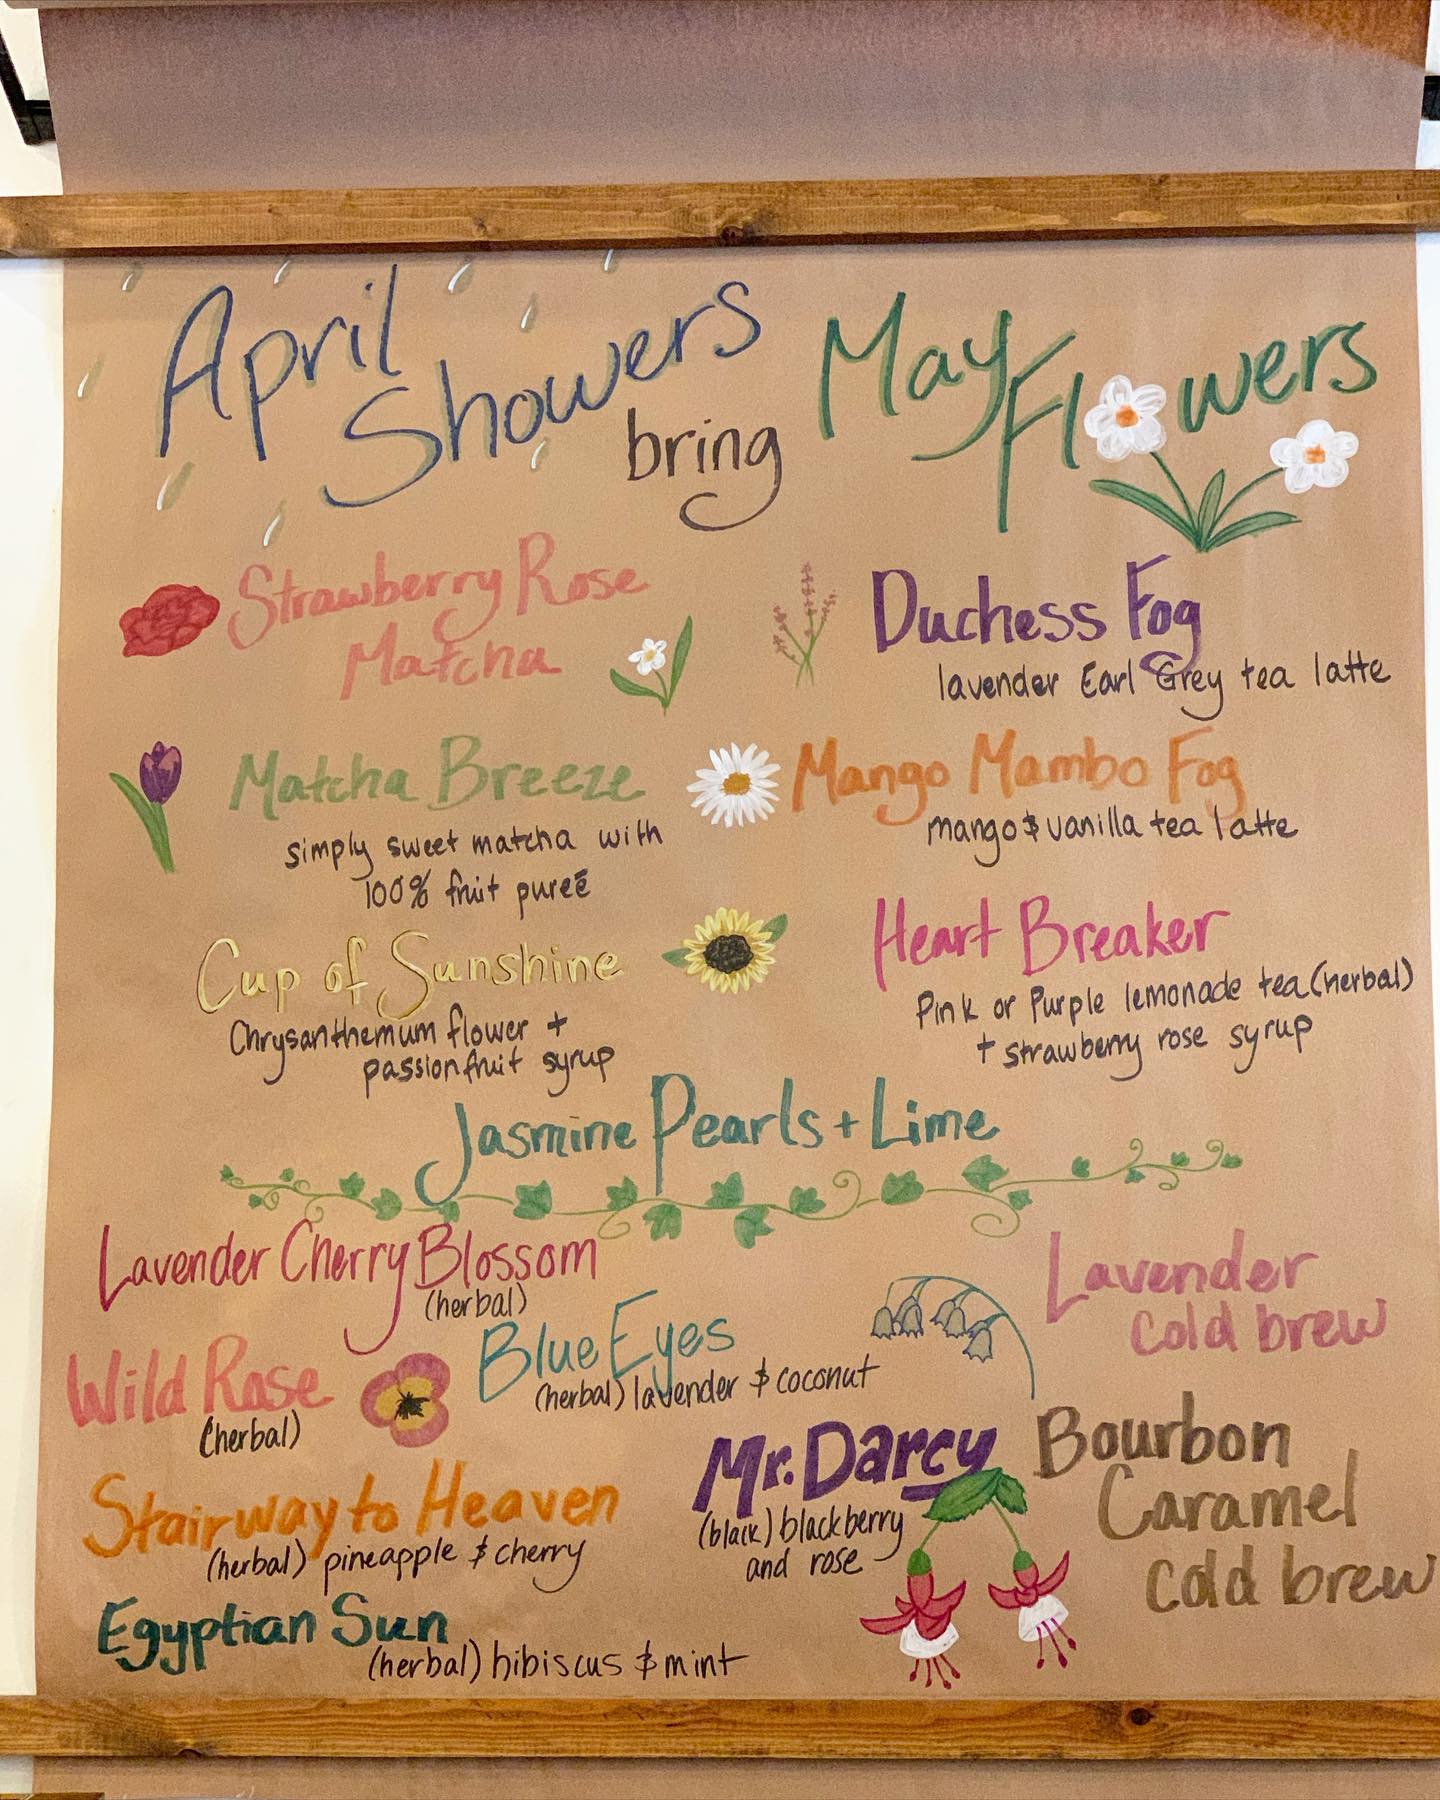 April
Showers
bring
May
Flowers
Strawberry Rose
Matcha
Duchess Fog
lavender Earl Grey tea latte
Matcha Breeze
simply sweet matcha with
100% fruit pureē
Mango Mambo Fog
mango & vanilla tea latte
Cup of Sunshine
Chrysanthemum flower +
passionfruit syrup
Heart Breaker
Pink or Purple lemonade tea (herbal)
+ strawberry rose syrup
Jasmine Pearls + Lime
Lavender Cherry Blossom
(herbal)
Lavender
cold brew
Wild Rose
(herbal)
Blue Eyes
(herbal) lavender & coconut
Stairway to Heaven
(herbal) pineapple & cherry
Mr. Darcy
(black) blackberry
and rose
Bourbon
Caramel
cold brew
Egyptian Sun
(herbal) hibiscus & mint